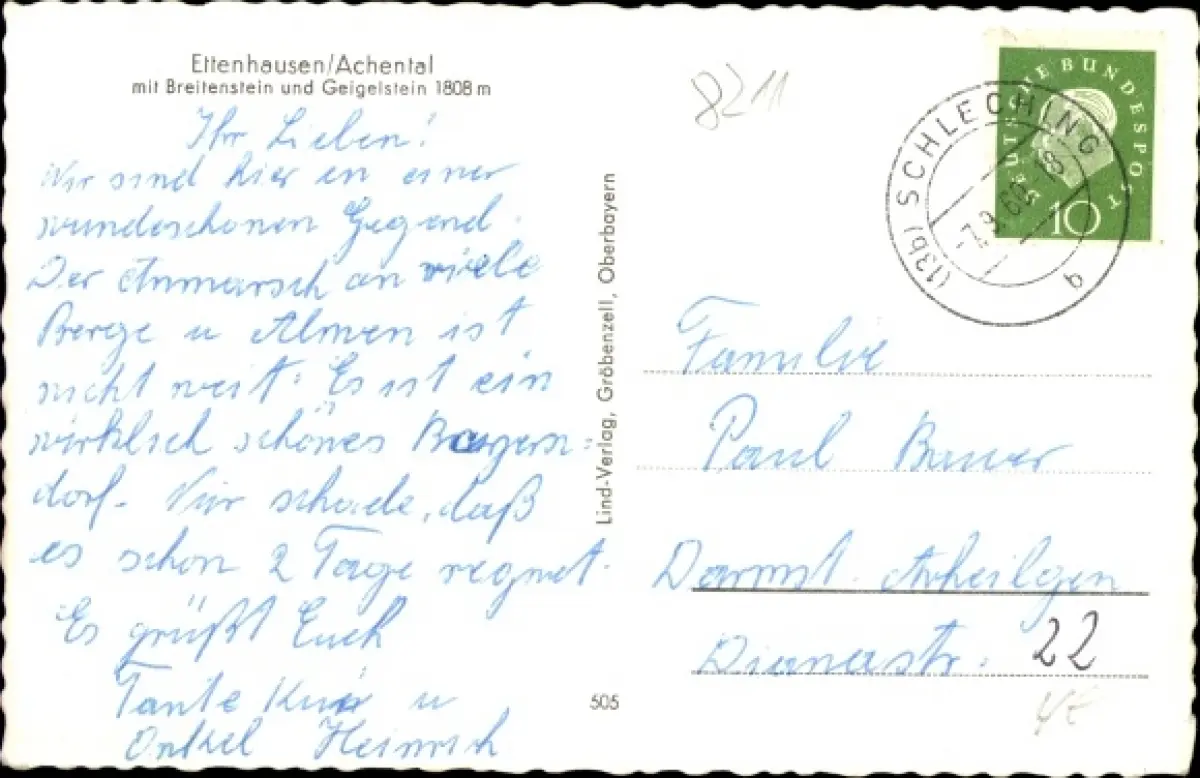 Ettenhausen/Achental
mit Breitenstein und Geigelstein 1808 m
Ihr Lieben!
Wir sind hier in einer
wundeschönen Gegend.
Der Anmarsch an viele
Berge u Almen ist
nicht weit. Es ist ein
wirklich schönes Bauern-
dorf. Nur schade, daß
es schon 2 Tage regnet.
Es grüßt Euch
Tante u
Onkel Heinrich
Lind-Verlag, Gröbenzell, Oberbayern
505
8211
DEUTSCHE BUNDESPOST
10
(13b) SCHLECHING
-7.9.60.-18
b
Familie
Paul Bauer
Darmst. Arheilgen
Dianastr. 22